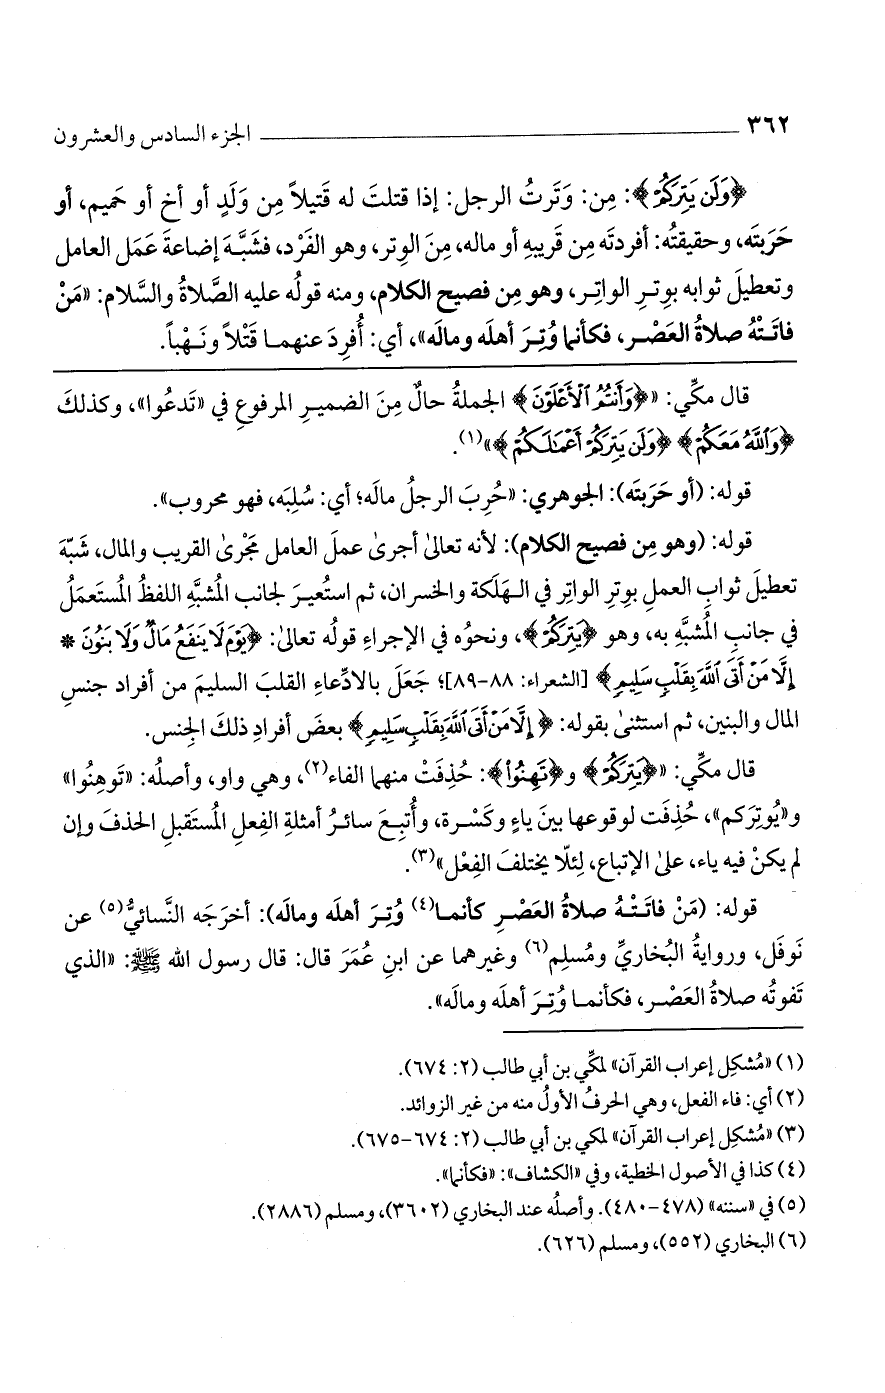 ٣٦٢ الجزء السادس والعشرون
﴿وَلَن يَتِرَكُمْ﴾: مِن: وَتَرتُ الرجل: إذا قتلتَ له قَتيلاً مِن وَلَدٍ أو أخ أو حَميم، أو
حَرَبتَه، وحقيقتُه: أفردتَه مِن قَريبِه أو ماله، مِنَ الوِتر، وهو الفَرْد، فشَبَّهَ إضاعةَ عَمَل العامل
وتعطيلَ ثوابه بوِترِ الواتِر، وهو مِن فصيح الكلام، ومنه قولُه عليه الصَّلاةُ والسَّلام: «مَنْ
فاتَتْهُ صلاةُ العَصْرِ، فكأنما وُتِرَ أهلَه ومالَه»، أي: أُفرِدَ عنهما قَتْلاً ونَهْباً.
قال مكّي: «﴿وَأَنتُمُ ٱلْأَعْلَوْنَ﴾ الجملةُ حالٌ مِنَ الضميرِ المرفوعِ في «تَدعُوا»، وكذلكَ
﴿وَٱللَّهُ مَعَكُمْ﴾ ﴿وَلَن يَتِرَكُمْ أَعْمَـٰلَكُمْ﴾»(١).
قوله: (أو حَرَبتَه): الجوهري: «حُرِبَ الرجلُ مالَه؛ أي: سُلِبَه، فهو محروب».
قوله: (وهو مِن فصيح الكلام): لأنه تعالىٰ أجرىٰ عملَ العامل مَجْرىٰ القريب والمال، شَبّهَ
تعطيلَ ثوابِ العملِ بوِترِ الواتِر في الهَلَكة والخسران، ثم استُعيرَ لجانب المُشبَّهِ اللفظُ المُستَعمَلُ
في جانبِ المُشبَّهِ به، وهو ﴿يَتِرَكُمْ﴾، ونحوُه في الإجراءِ قولُه تعالىٰ: ﴿يَوْمَ لَا يَنفَعُ مَالٌ وَلَا بَنُونَ *
إِلَّا مَنْ أَتَى ٱللَّهَ بِقَلْبٍ سَلِيمٍ﴾ [الشعراء: ٨٨-٨٩]؛ جَعَلَ بالادِّعاءِ القلبَ السليمَ من أفراد جنسِ
المال والبنين، ثم استثنىٰ بقوله: ﴿إِلَّا مَنْ أَتَى ٱللَّهَ بِقَلْبٍ سَلِيمٍ﴾ بعضَ أفرادِ ذلكَ الجِنس.
قال مكّي: «﴿يَتِرَكُمْ﴾ و﴿تَهِنُوا۟﴾: حُذِفَتْ منهما الفاء(٢)، وهي واو، وأصلُه: «تَوهِنُوا»
و«يُوتِرَكم»، حُذِفَت لوقوعها بينَ ياءٍ وكَسْرة، وأُتبِعَ سائرُ أمثلةِ الفِعلِ المُستَقبلِ الحذفَ وإن
لم يكنْ فيه ياء، علىٰ الإتباع، لِئلّا يختلفَ الفِعْل»(٣).
قوله: (مَنْ فاتَتْهُ صلاةُ العَصْرِ كأنما(٤) وُتِرَ أهلَه ومالَه): أخرَجَه النَّسائيُّ(٥) عن
نَوفَل، وروايةُ البُخاريِّ ومُسلِم(٦) وغيرهما عن ابنِ عُمَرَ قال: قال رسول الله ﷺ: «الذي
تَفوتُه صلاةُ العَصْر، فكأنما وُتِرَ أهلَه ومالَه».
(١) «مُشكِل إعراب القرآن» لمكّي بن أبي طالب (٢: ٦٧٤).
(٢) أي: فاء الفعل، وهي الحرفُ الأولُ منه من غير الزوائد.
(٣) «مُشكِل إعراب القرآن» لمكي بن أبي طالب (٢: ٦٧٤-٦٧٥).
(٤) كذا في الأصول الخطية، وفي «الكشاف»: «فكأنما».
(٥) في «سننه» (٤٧٨-٤٨٠). وأصلُه عند البخاري (٣٦٠٢)، ومسلم (٢٨٨٦).
(٦) البخاري (٥٥٢)، ومسلم (٦٢٦).